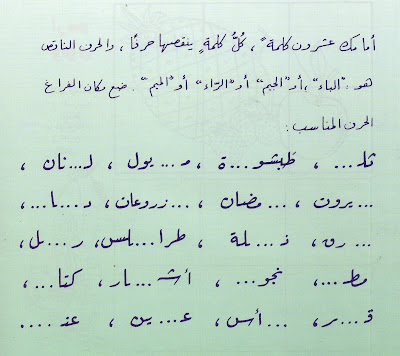 أمامك عشرون كلمةً، كُلُّ كلمةٍ ينقصها حرفًا، والحرف الناقص
هو: "الباء"، أو "الجيم" أو "الرّاء" أو "الميم". ضع مكان الفراغ
الحرف المناسب:
ثلـ...، طَبشو...ة، مـ...يول، لـ...نان،
...يروت، ...مضان، ...زروعات، د...ا...،
...رق، نـ...لة، طرا...لس، ر...ـل،
مطـ...، نجو...، أشـ...ـار، كتا...،
قـ...ـر، ...أس، عـ...ـين، عنـ....